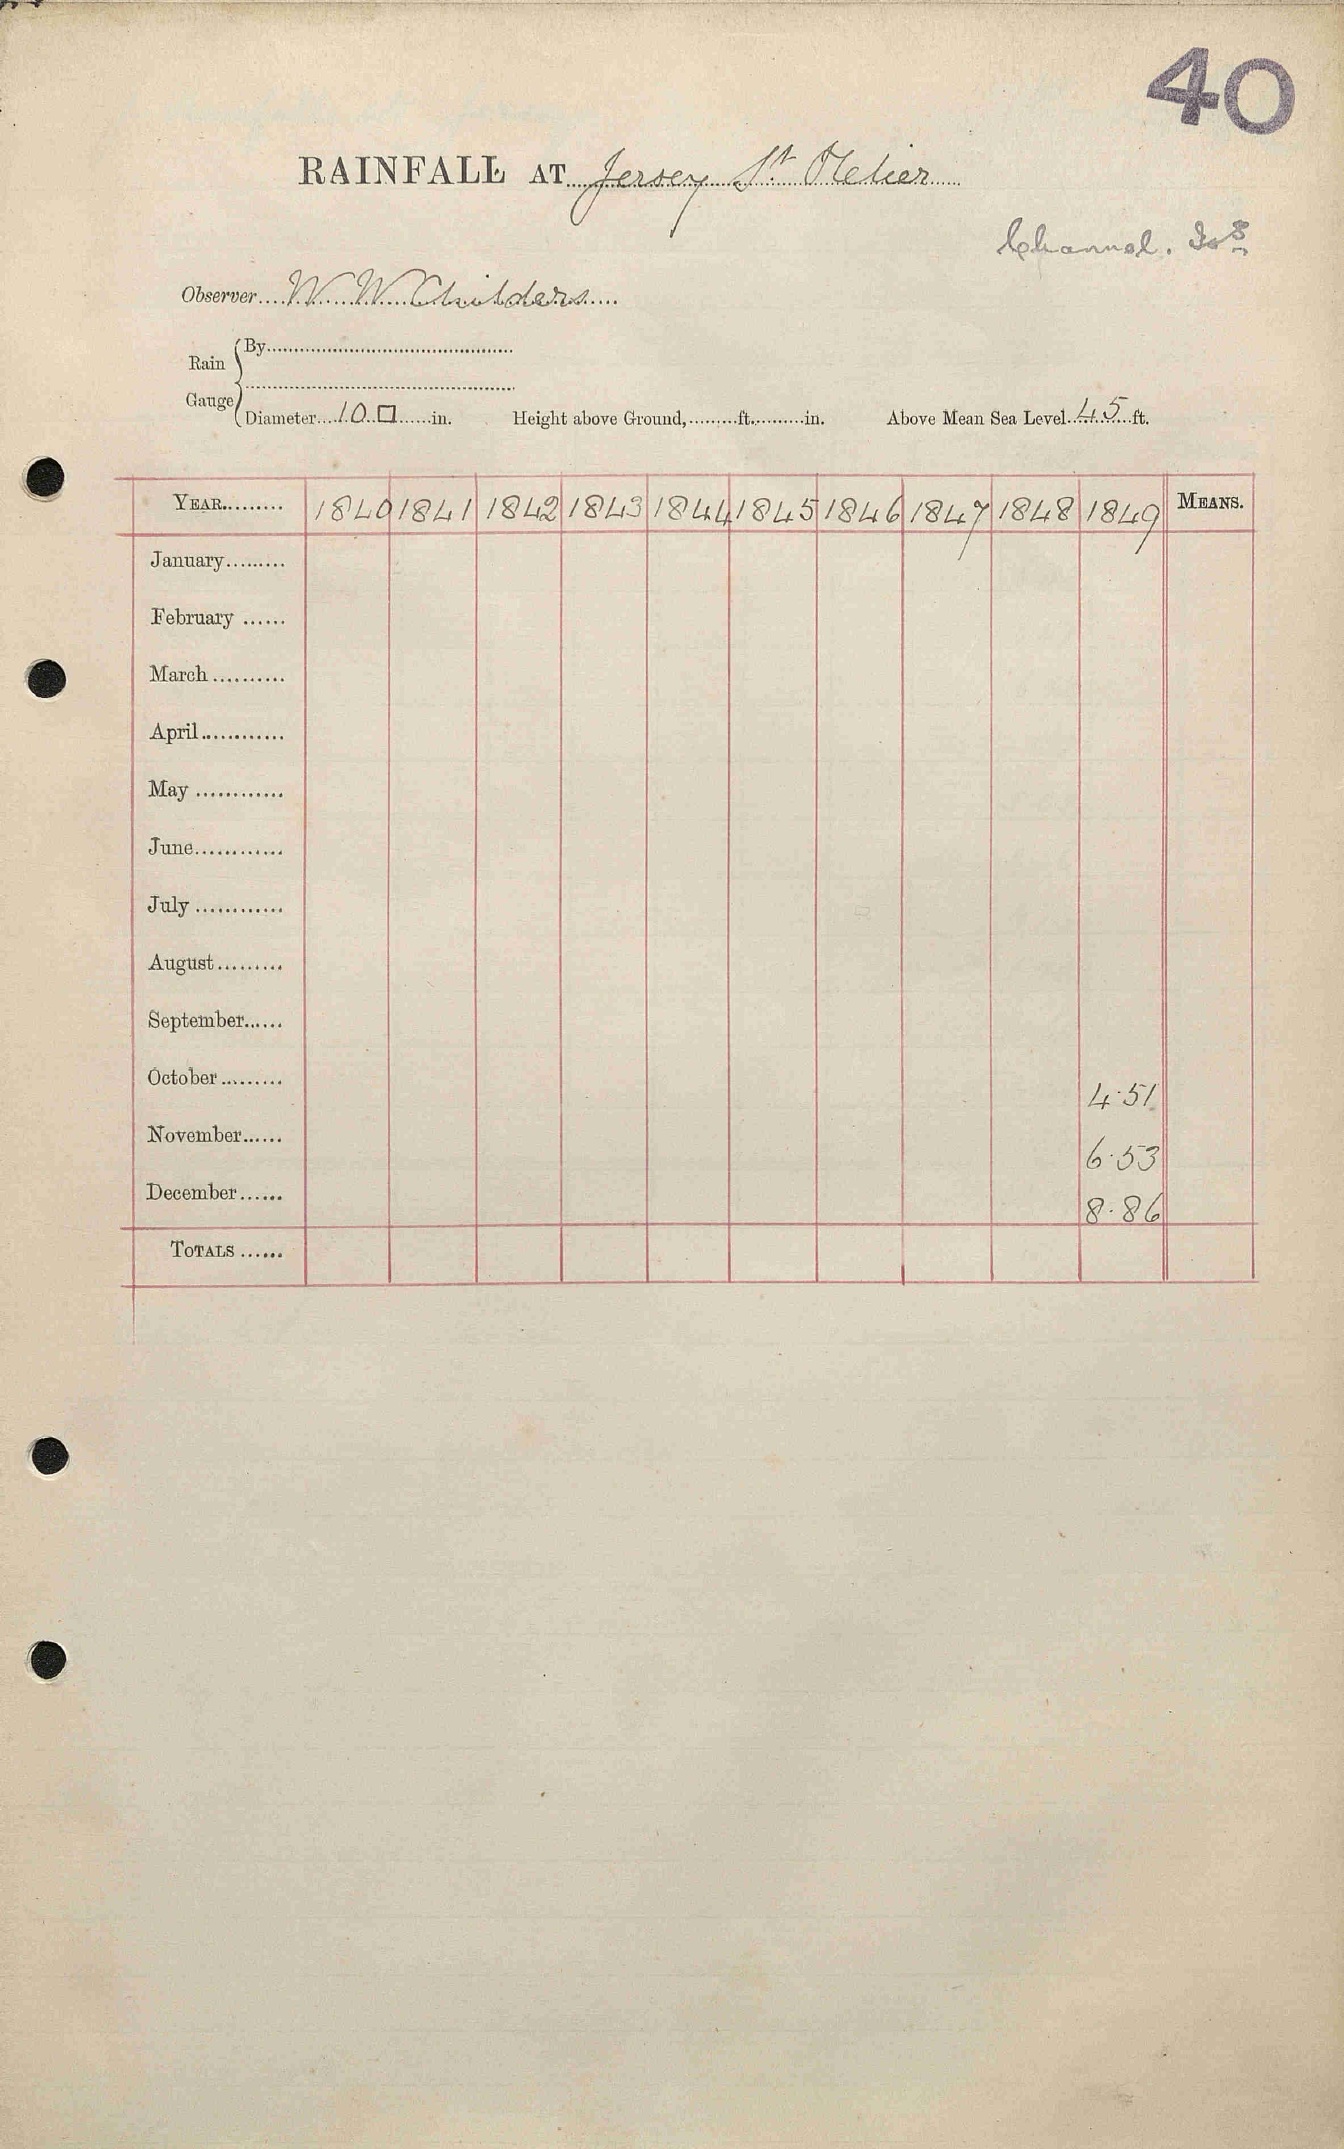 40
RAINFALL AT Jersey St Helier
Channel. Is
Observer W W Childers
Rain
Gauge
By
Diameter 10 □ in. Height above Ground, ft. in. Above Mean Sea Level 45 ft.
YEAR 1840 1841 1842 1843 1844 1845 1846 1847 1848 1849 MEANS.
January
February
March
April
May
June
July
August
September
October 4.51
November 6.53
December 8.86
TOTALS